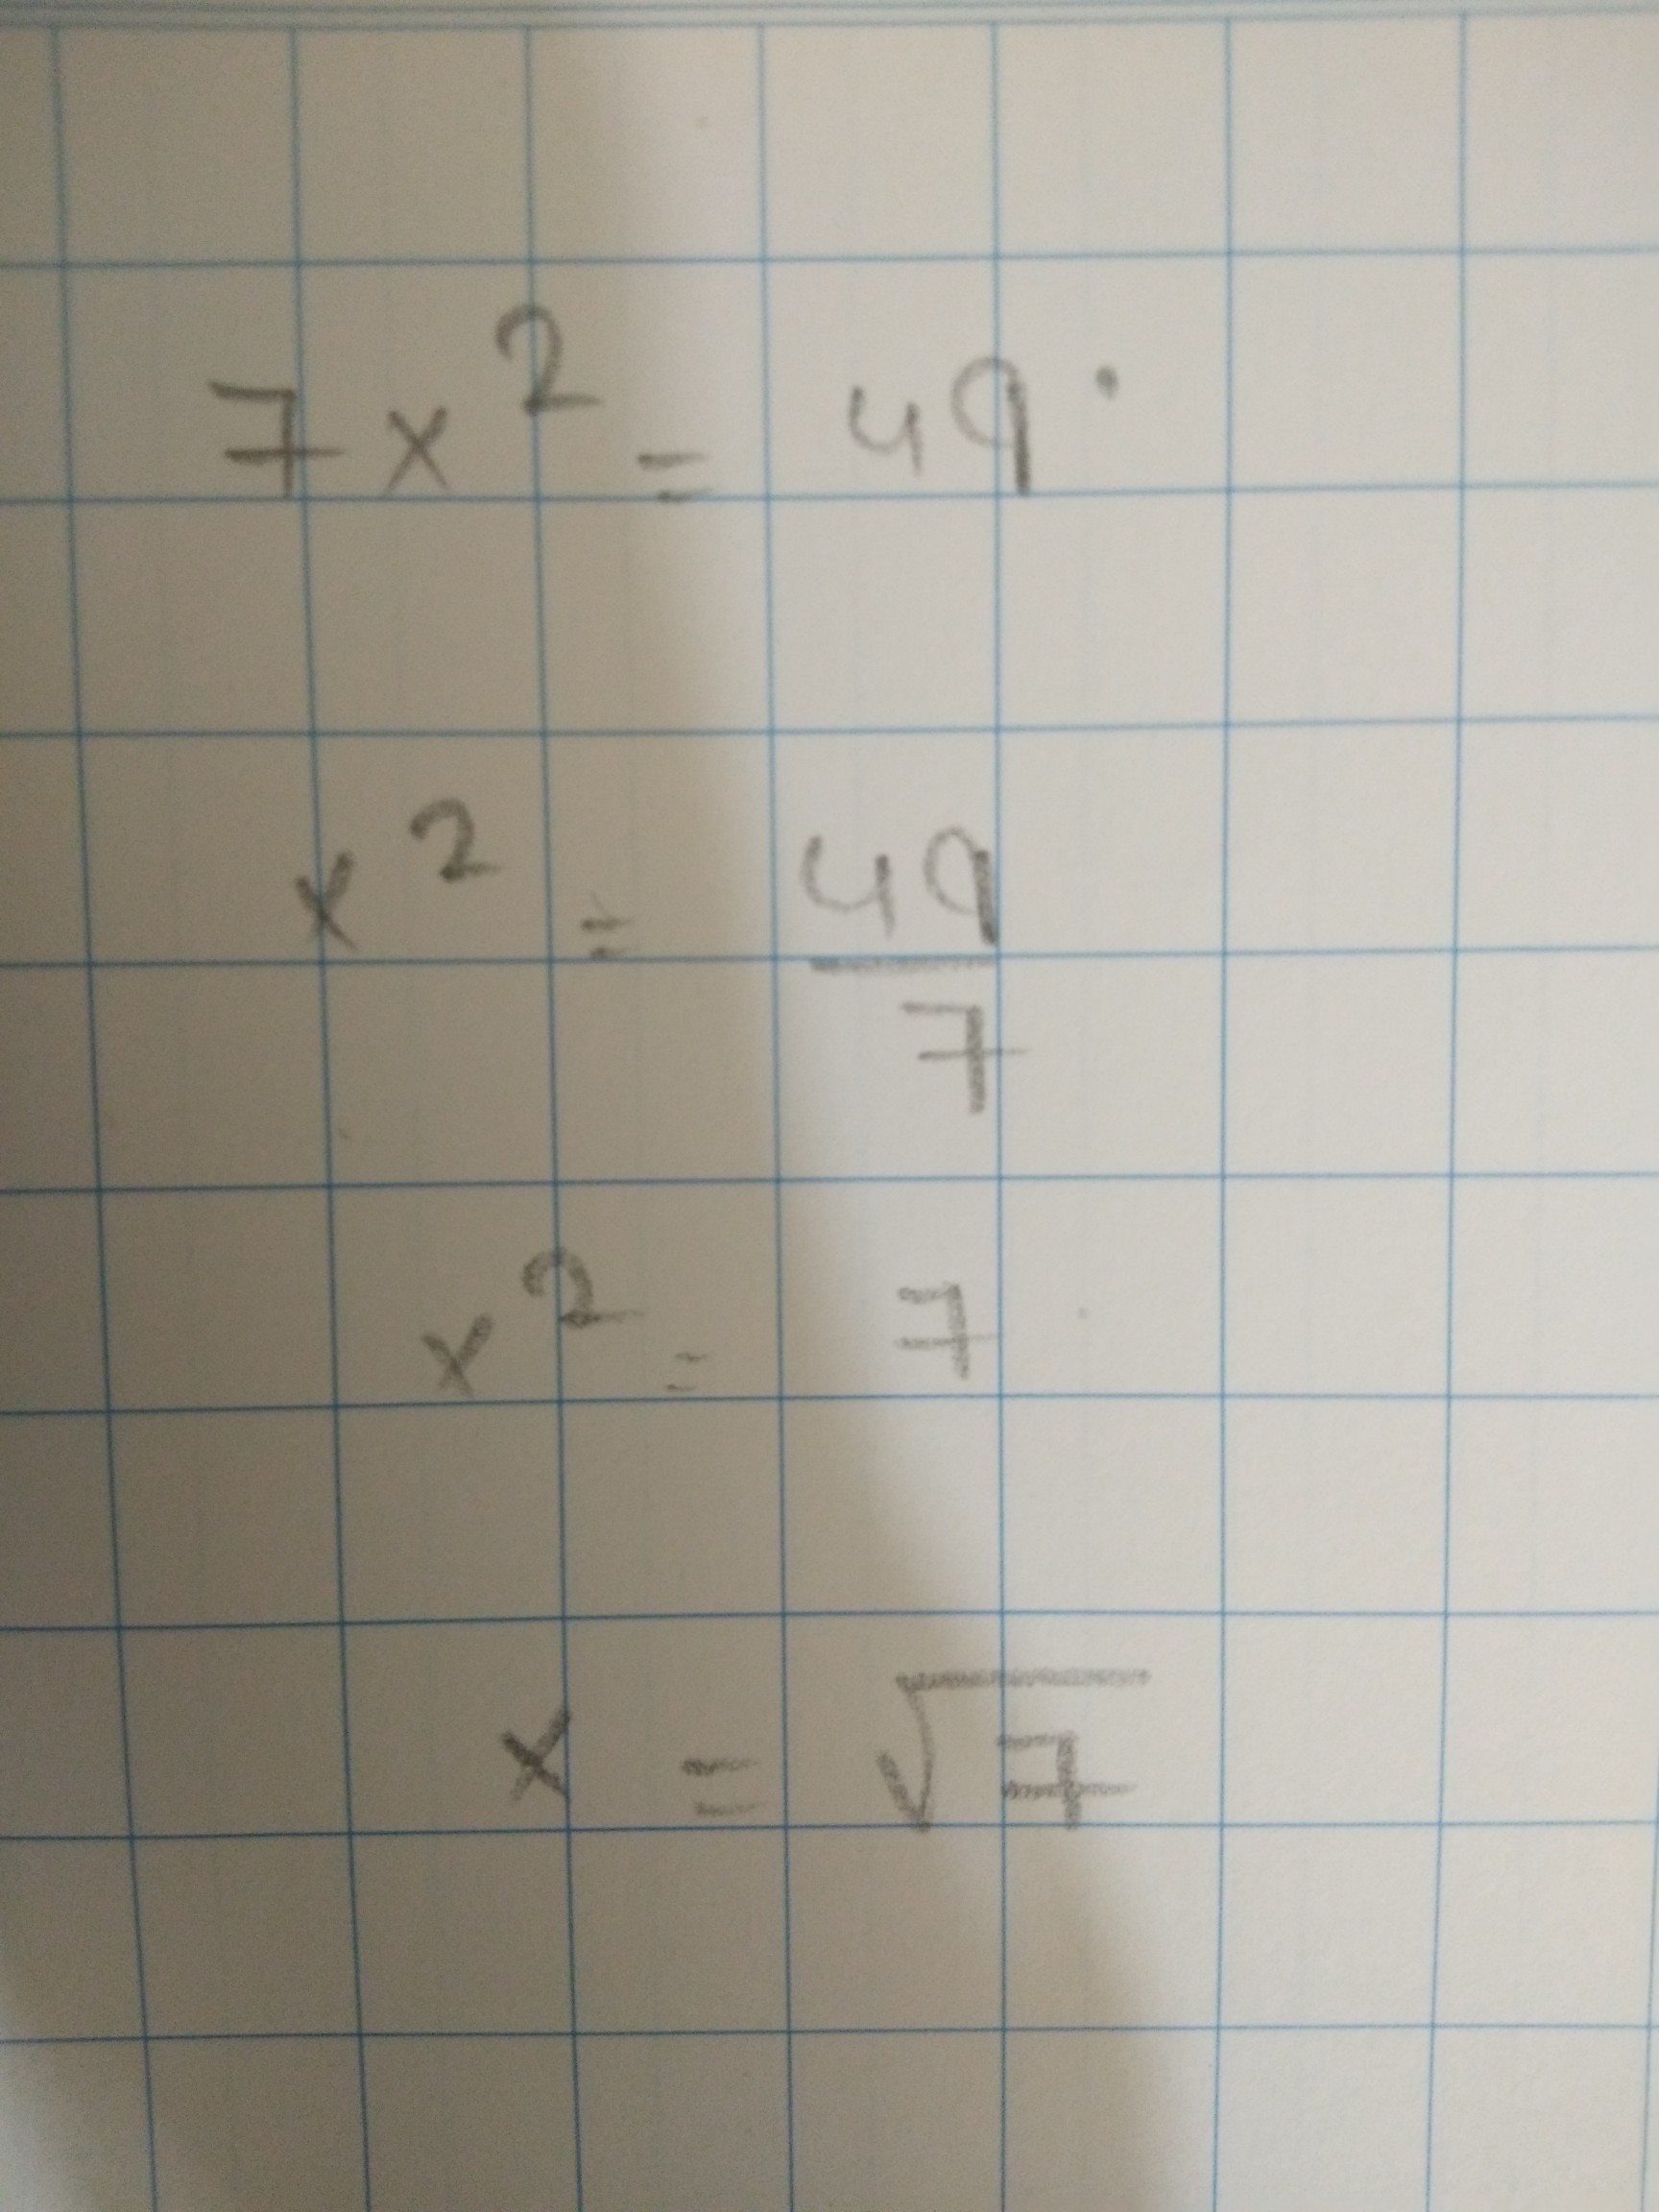 7x² = 49
x² = 49/7
x² = 7
x = √7